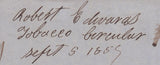 Robert Edwards
Tobacco Circular
Sept 5 185